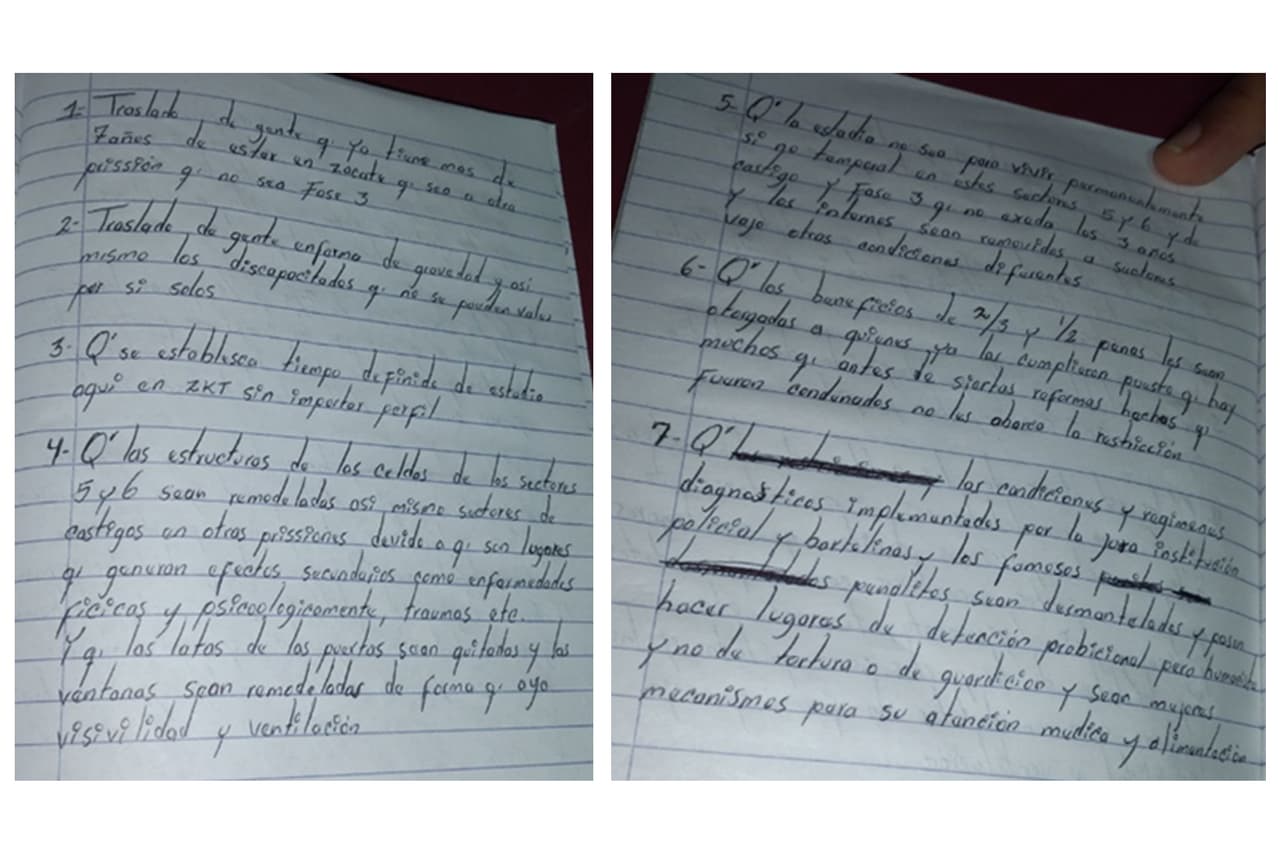 1- Traslado de gente q. ya tiene mas de
7 años de estar en zacate q. sea a otra
prissión q. no sea Fase 3
2- Traslado de gente enferma de gravedad y asi
mismo los discapacitados q. no se pueden valer
por si solos
3- Q' se establesca tiempo definido de estadia
aqui en ZKT sin importar perfil
4- Q' las estructuras de las celdas de los sectores
5 y 6 sean remodeladas asi mismo sectores de
castigos en otras prissiones devido a q. son lugares
q. generan efectos secundarios como enfermedades
ficicas y psicoologicamente, traumas etc.
Y q. las latas de las puertas sean quitadas y las
ventanas sean remodeladas de forma q. aya
visivilidad y ventilación
5- Q' la estadia no sea para vivir permanentemente
si no temporal en estos sectores 5 y 6 y de
castigo y Fase 3 q. no exeda los 3 años
y los internos sean removidos a sectores
vajo otras condiciones diferentes
6- Q' los beneficios de 2/3 y 1/2 penas les sean
otorgadas a quienes ya las cumplieron pueste q. hay
muchos q. antes de siertas reformas hechas q.
Fueron condenados no les abarca la restricción
7- Q' las condiciones y regimenes
diagnosticos implementados por la jura institución
policial y bartolinas y los famosos
penalitos sean desmantelados y pasen
hacer lugares de detención probicional pero
y no de tortura o de guardicion y sean mejores
mecanismos para su atención medica y alimentación